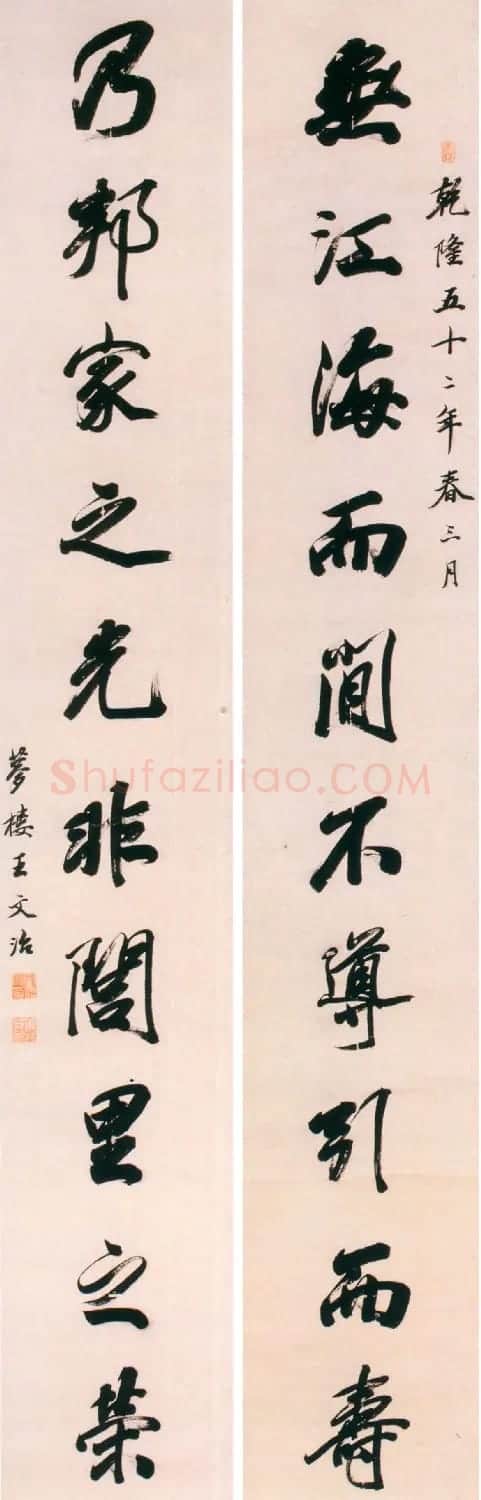 乾隆五十二年春三月
無江海而閒不導引而壽
乃邦家之光非閭里之榮
夢樓王文治
Shufaziliao.COM